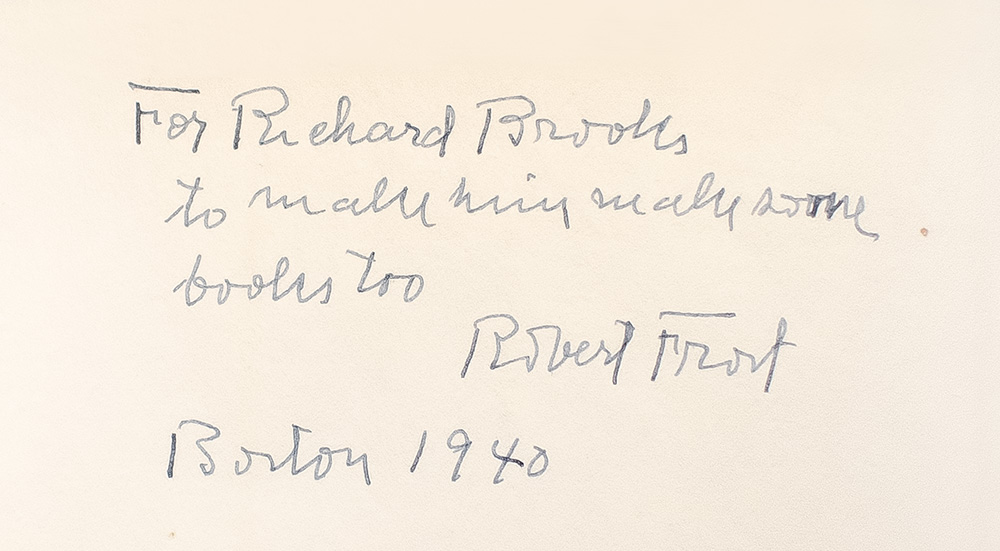 For Richard Brooks
to make him make some
books too
Robert Frost
Boston 1940